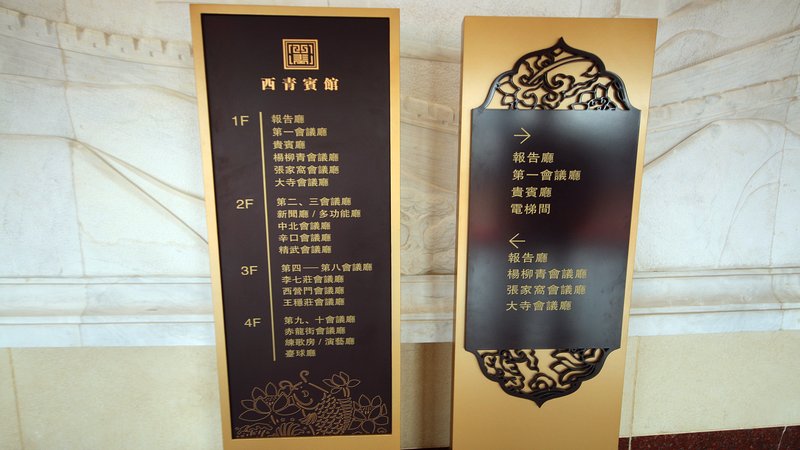 西青賓館
1F
報告廳
第一會議廳
貴賓廳
楊柳青會議廳
張家窩會議廳
大寺會議廳
2F
第二、三會議廳
新聞廳/多功能廳
中北會議廳
辛口會議廳
精武會議廳
3F
第四——第八會議廳
李七莊會議廳
西營門會議廳
王穩莊會議廳
4F
第九、十會議廳
赤龍街會議廳
練歌房/演藝廳
臺球廳
→
報告廳
第一會議廳
貴賓廳
電梯間
←
報告廳
楊柳青會議廳
張家窩會議廳
大寺會議廳